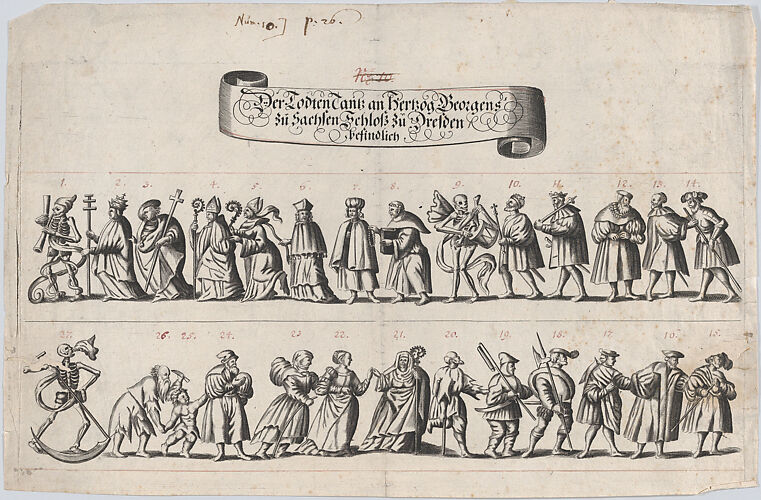 Num. 10. p. 26.
No 10
Der Todten Tantz an Hertzog Georgens
zu Sachsen Schloß zu Dresden
befindlich.
1. 2. 3. 4. 5. 6. 7. 8. 9. 10. 11. 12. 13. 14.
27. 26. 25. 24. 23. 22. 21. 20. 19. 18. 17. 16. 15.